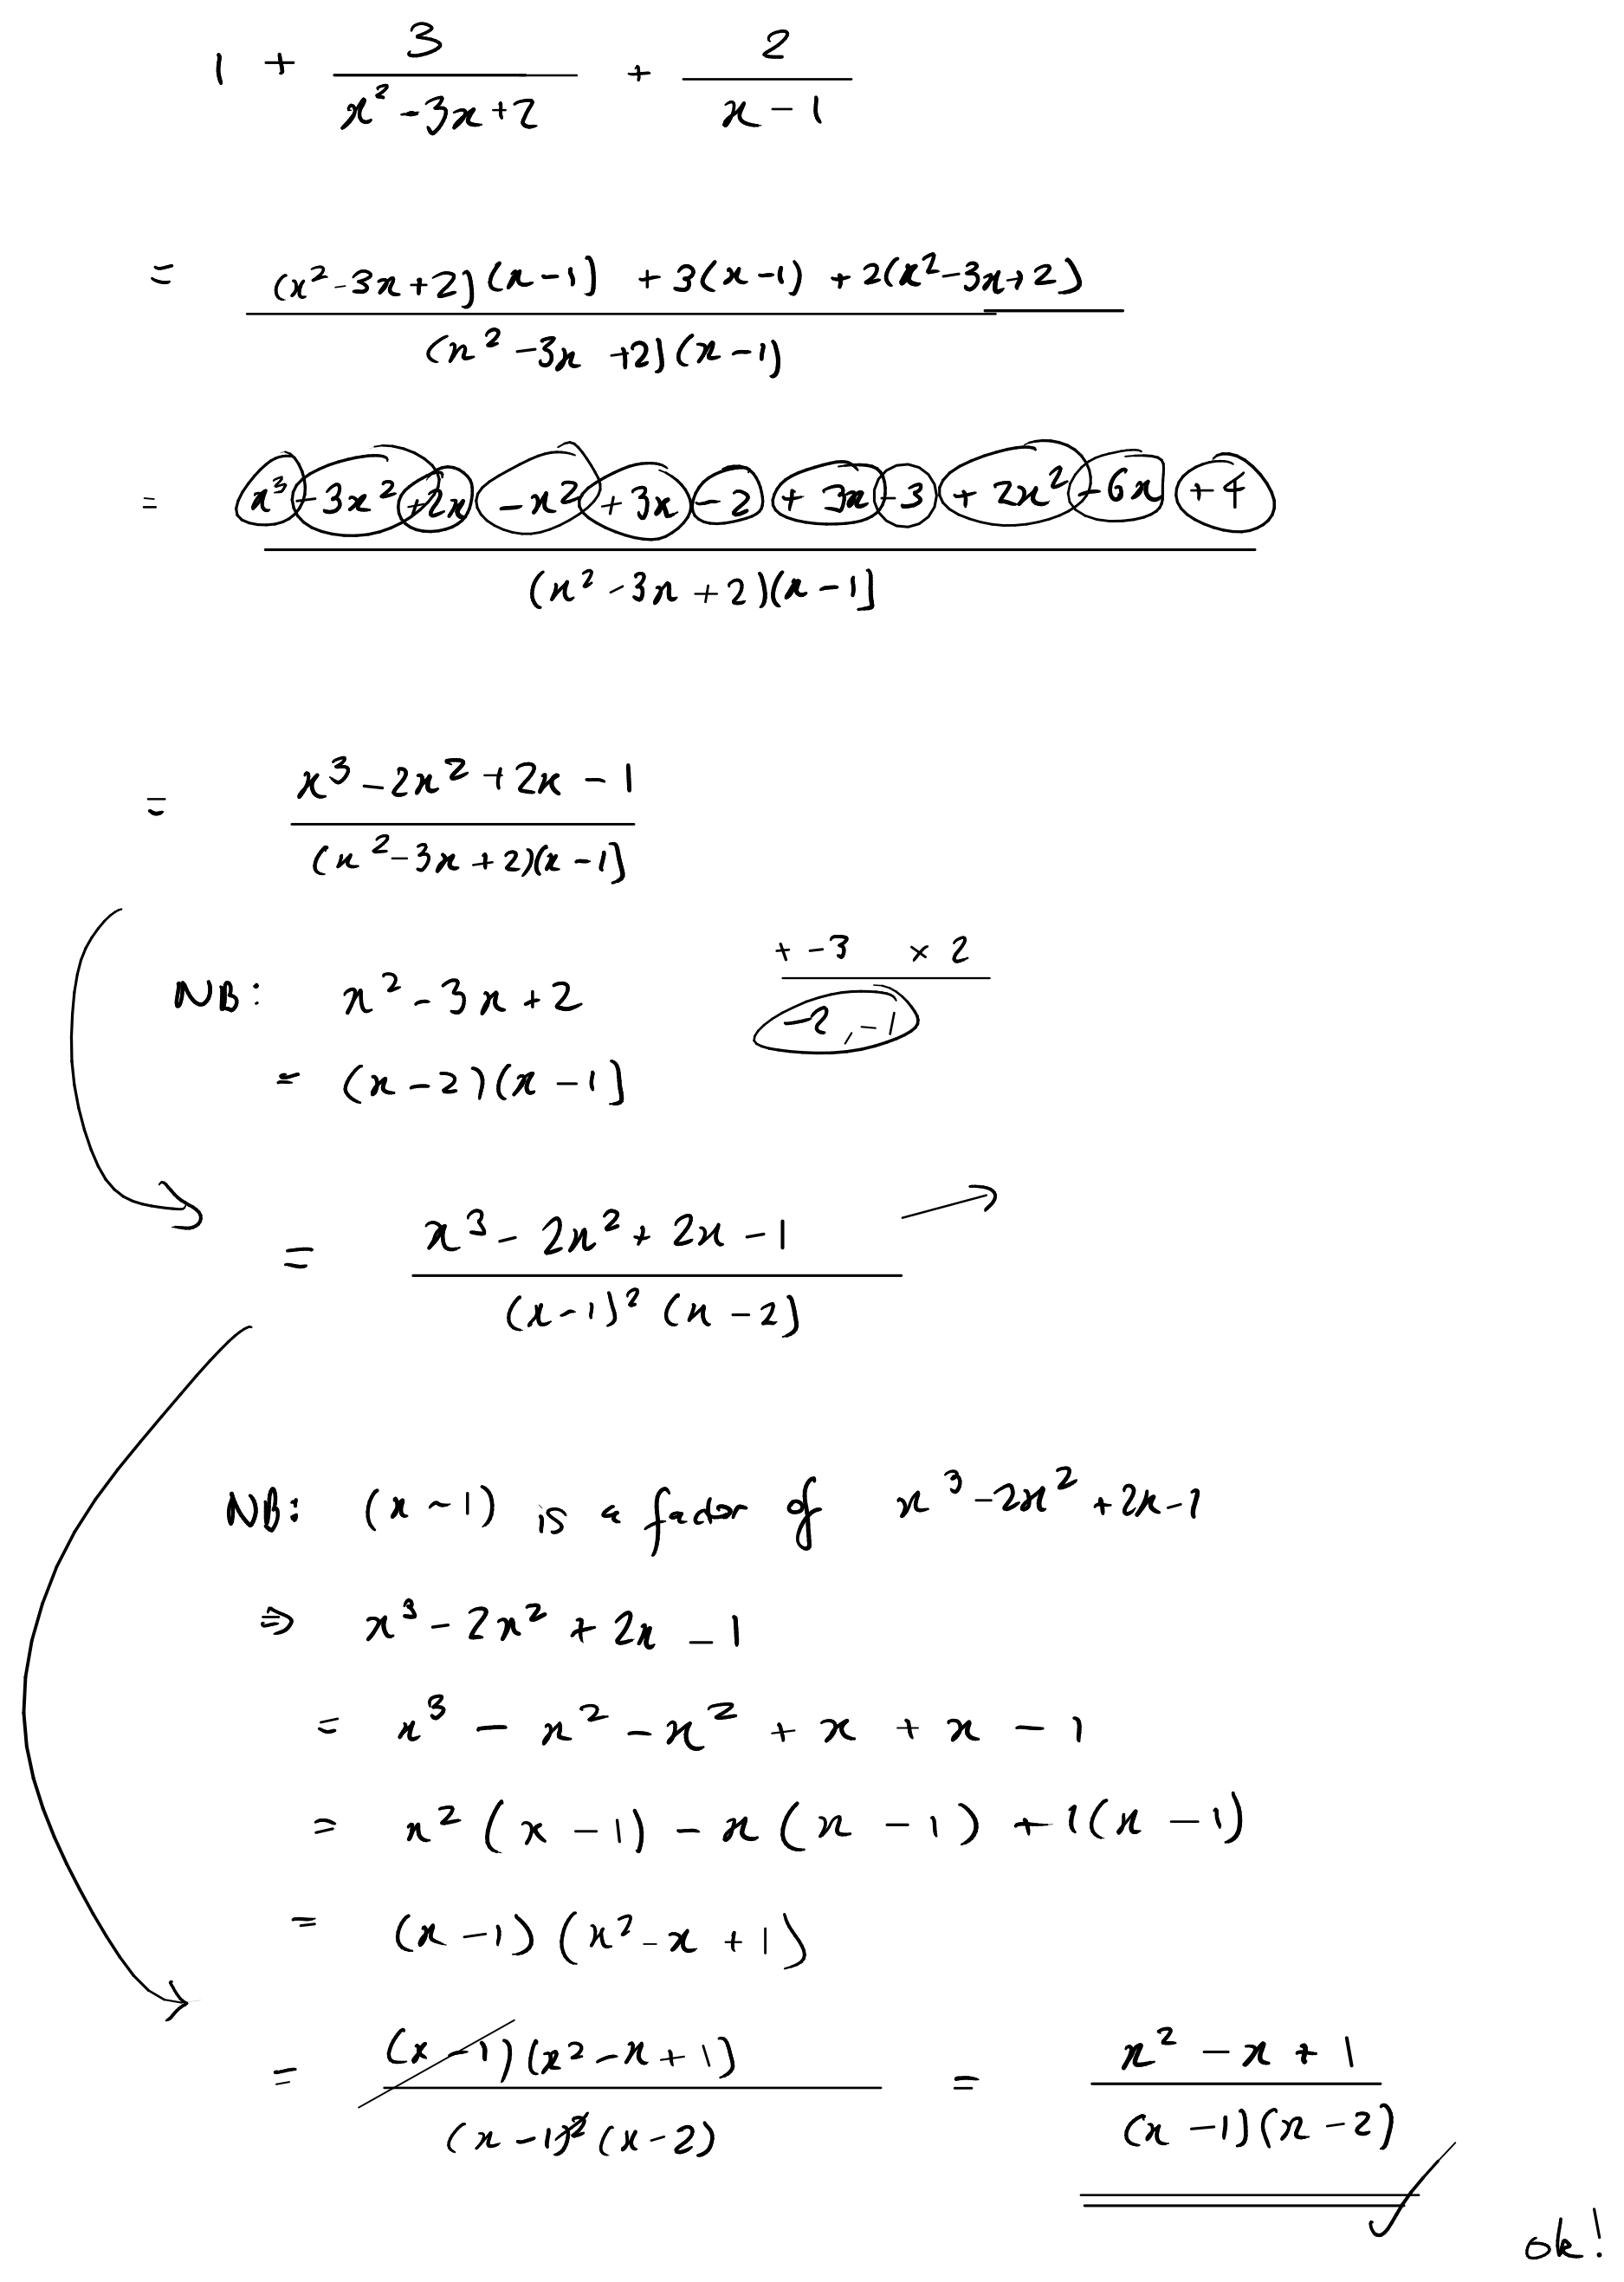 1 + 3/(x² - 3x + 2) + 2/(x - 1)
= ((x² - 3x + 2)(x - 1) + 3(x - 1) + 2(x² - 3x + 2))/((x² - 3x + 2)(x - 1))
= (x³ - 3x² + 2x - x² + 3x - 2 + 3x - 3 + 2x² - 6x + 4)/((x² - 3x + 2)(x - 1))
= (x³ - 2x² + 2x - 1)/((x² - 3x + 2)(x - 1))
+ -3 × 2
NB: x² - 3x + 2
-2, -1
= (x - 2)(x - 1)
= (x³ - 2x² + 2x - 1)/((x - 1)²(x - 2)) →
NB: (x - 1) is a factor of x³ - 2x² + 2x - 1
⇒ x³ - 2x² + 2x - 1
= x³ - x² - x² + x + x - 1
= x²(x - 1) - x(x - 1) + 1(x - 1)
= (x - 1)(x² - x + 1)
= ((x - 1)(x² - x + 1))/((x - 1)²(x - 2)) = (x² - x + 1)/((x - 1)(x - 2)) ✓
ok!